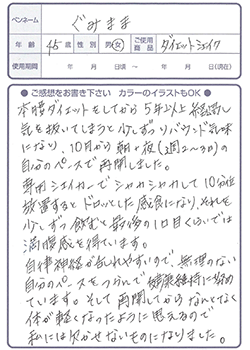 ペンネーム ぐみまま
年齢 45歳 性別 男・女 ご使用商品 ダイエットシェイク
使用期間 年 月 日頃 〜 年 月 日
● ご感想をお書き下さい カラーのイラストもOK ●
本腰ダイエットをしてから5年以上経過し
気を抜いてしまうと少しずつリバウンド気味
になり、10月から朝と夜(週2〜3か)の
自分のペースで再開しました。
専用シェイカーでシャカシャカして10分位
放置するとドロッとした感食になり、それを
少しずつ飲むと最後の1口くらいでは
満腹感を得ています。
自律神経が乱れやすいので、無理のない
自分のペースをつらぬいて健康維持に努め
ています。そして再開してからなんとなく
体が軽くなったように思えるので
私には欠かせないものになりました。